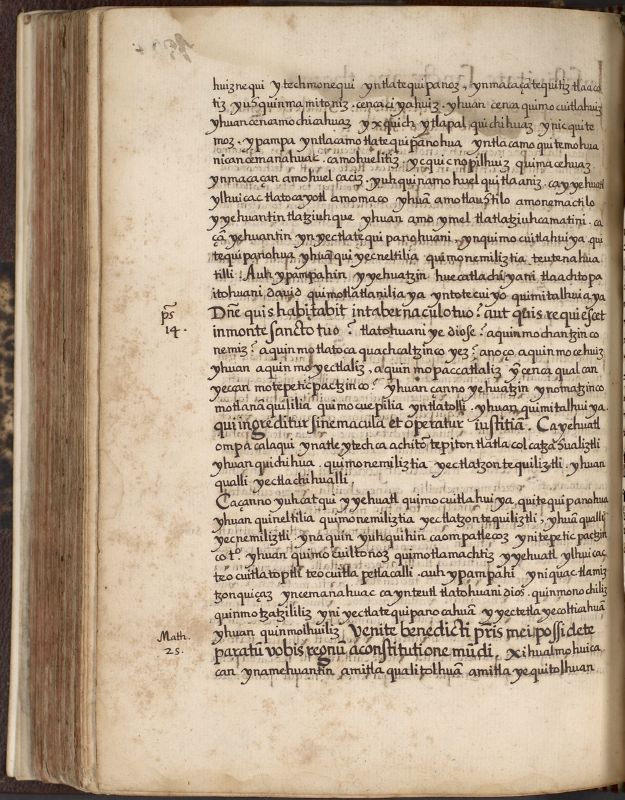 huiznequi ytechmonequi yntlatequipanoz, ynmacaçatequitiz tlaaco
tiz yuhquinmamitoniz. cencaciyahuiz. yhuan cenca quimocuitlahuiz
yhuan cencamochicahuaz yxquich ytlapal quichihuaz ynicquite
moz. ypampa yntlacamo tlatequipanohua yntlacamo quitemohua
nican cemanahuac. camohuelitiz ycquicnopilhuiz quimacehuaz
ynmacaçan amohuel caciz. yuhquinamo huel quitlaniz. ca yyehuatl
ylhuicac tlatocayotl amomaco yhuã amotlauhtilo amonemactilo
yyehuantin tlatziuhque yhuan amo ymel tlatlatziuhcamatini. ca
çã yehuantin ynyectlatequipanohuani. ynquimocuitlahuiya qui
tequipanohua yhuã quiyecneltilia quimonemiliztia teutenahua
tilli: Auh ypampahin yyehuatzin huecatlachiyani tlaachtopa
itohuani dauid quimotlatlanilia ya yntotecuiyo quimitalhuia ya
Dñe quis habitabit intabernaculo tuo? aut quis requiescet
ps̃
14.
in monte sancto tuo? tlatohuani ye diose? aquin mochantzinco
nemiz? aquin motlatoca quachcaltzinco yez? anoço aquin mocehuiz
yhuan aquin moyectlaliz, aquin mopaccatlaliz ycenca qualcan
yeccan motepetic pactzinco? yhuan çanno yehuatzin ynomatzinco
motlanãquililia quimocuepilia yntlatolli. yhuan quimitalhuiya.
qui ingreditur sine macula et operatur iustitiã. Ca yehuatl
ompa calaqui ynatle ytech ca achitõ tepiton tlatlacolcatzahualiztli
yhuan quichihua. quimonemiliztia yectlatzontequiliztli. yhuan
qualli yectlachihualli
Caçanno yuhcatqui yyehuatl quimocuitlahuiya, quitequipanohua
yhuan quineltilia quimonemiliztia yectlatzontequiliztli, yhuã qualli
yecnemiliztli ynaquin yuhquihin caompatlecoz ynitepetic pactzin
co tº yhuan quimocuiltonoz quimotlamachtiz yyehuatl ylhuicac
teocuitlatoptli teocuitlapetlacalli. auh ypampahi yniquac tlamiz
tzonquiçaz yncemanahuac ca ynteutl tlatohuani dios. quinmonochiliz
quinmotzatzililiz yni yectlatequipanocahuã yyectetlayecolticahuã
yhuan quinmolhuiliz Venite benedicti pr̃is mei possidete
Math.
25.
paratũ vobis regnũ a constitutione mũdi. Xihualmohuica
can ynamehuantin amitlaqualitolhuã amitlayequitolhuan